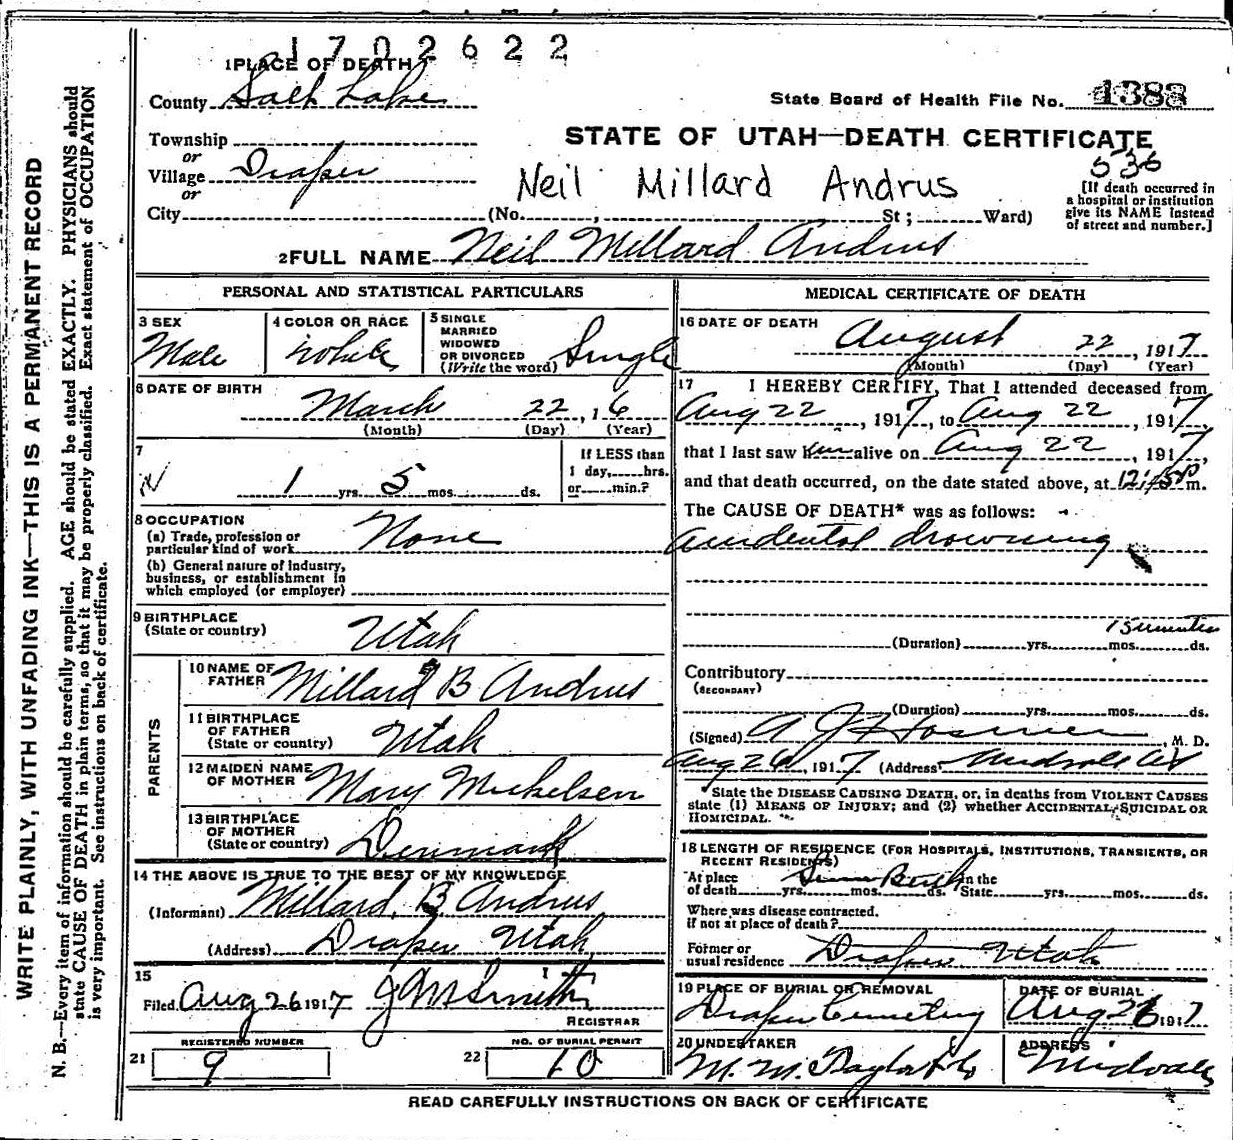 1702622
1 PLACE OF DEATH
County Salt Lake
State Board of Health File No. 4388
Township
or
STATE OF UTAH—DEATH CERTIFICATE
Village Draper
or
536
Neil Millard Andrus
[If death occurred in a hospital or institution give its NAME instead of street and number.]
City (No. , St ; Ward)
2 FULL NAME Neil Millard Andrus
PERSONAL AND STATISTICAL PARTICULARS
3 SEX
Male
4 COLOR OR RACE
White
5 SINGLE
MARRIED
WIDOWED
OR DIVORCED
(Write the word)
Single
6 DATE OF BIRTH
March 22, 16
(Month) (Day) (Year)
7
1 yrs. 5 mos. ds.
If LESS than
1 day, hrs.
or min.?
8 OCCUPATION
(a) Trade, profession or
particular kind of work None
(b) General nature of industry,
business, or establishment in
which employed (or employer)
9 BIRTHPLACE
(State or country) Utah
PARENTS
10 NAME OF
FATHER Millard B Andrus
11 BIRTHPLACE
OF FATHER
(State or country) Utah
12 MAIDEN NAME
OF MOTHER Mary Mickelsen
13 BIRTHPLACE
OF MOTHER
(State or country) Denmark
14 THE ABOVE IS TRUE TO THE BEST OF MY KNOWLEDGE
(Informant) Millard B Andrus
(Address) Draper Utah
15
Filed Aug 26 1917 J M Smith
REGISTRAR
REGISTERED NUMBER
21 9
NO. OF BURIAL PERMIT
22 10
MEDICAL CERTIFICATE OF DEATH
16 DATE OF DEATH
August 22, 1917
(Month) (Day) (Year)
17 I HEREBY CERTIFY, That I attended deceased from
Aug 22, 1917, to Aug 22, 1917,
that I last saw alive on Aug 22, 1917,
and that death occurred, on the date stated above, at m.
The CAUSE OF DEATH* was as follows:
accidental drowning
15 minutes
(Duration) yrs. mos. ds.
Contributory
(SECONDARY)
(Duration) yrs. mos. ds.
(Signed) A , M. D.
Aug 26, 1917 (Address) Midvale
*State the DISEASE CAUSING DEATH, or, in deaths from VIOLENT CAUSES
state (1) MEANS OF INJURY; and (2) whether ACCIDENTAL, SUICIDAL OR
HOMICIDAL.
18 LENGTH OF RESIDENCE (FOR HOSPITALS, INSTITUTIONS, TRANSIENTS, OR
RECENT RESIDENTS)
At place Since Birth In the
of death yrs. mos. ds. State yrs. mos. ds.
Where was disease contracted,
if not at place of death?
Former or
usual residence Draper Utah
19 PLACE OF BURIAL OR REMOVAL
Draper Cemetery
DATE OF BURIAL
Aug 26 1917
20 UNDERTAKER
M. M. Taylor & Co
ADDRESS
Midvale
READ CAREFULLY INSTRUCTIONS ON BACK OF CERTIFICATE
WRITE PLAINLY, WITH UNFADING INK—THIS IS A PERMANENT RECORD
N. B.—Every item of information should be carefully supplied. AGE should be stated EXACTLY. PHYSICIANS should
state CAUSE OF DEATH in plain terms, so that it may be properly classified. Exact statement of OCCUPATION
is very important. See instructions on back of certificate.